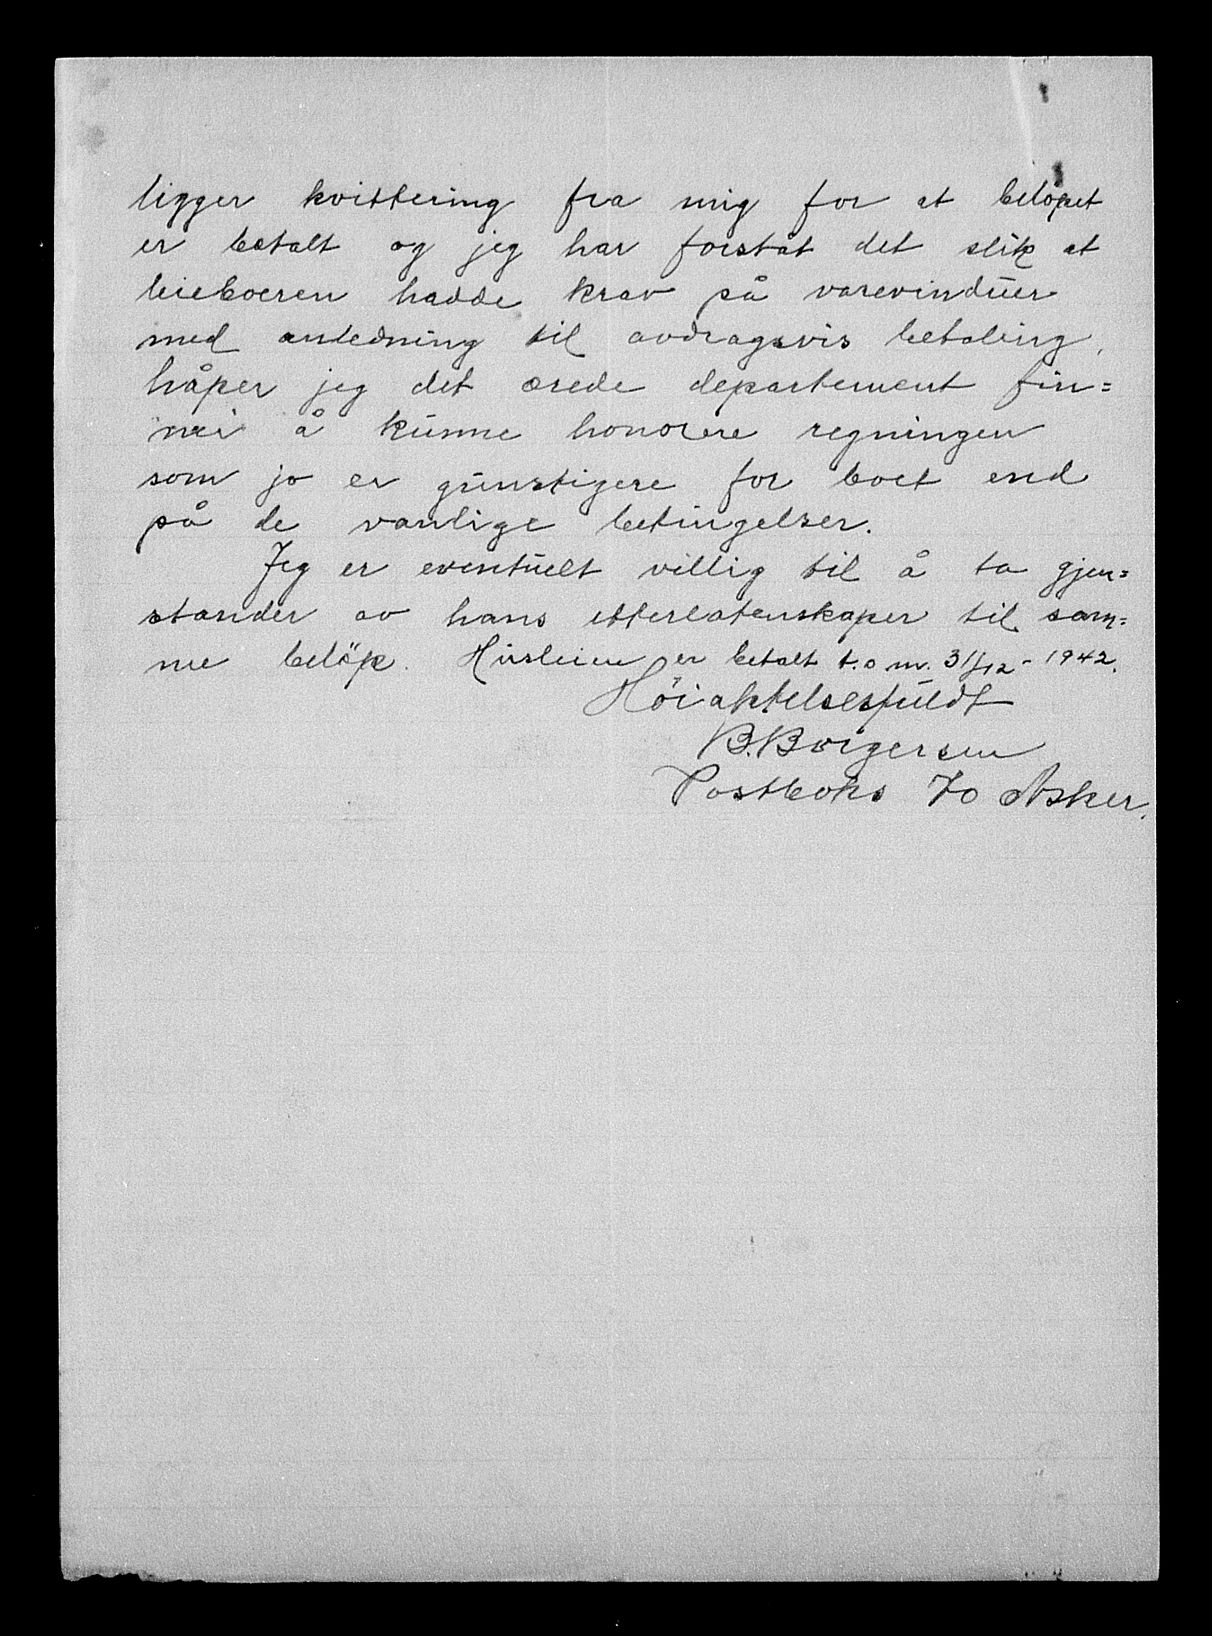 ligger kvittering fra mig for at beløpet
er betalt og jeg har forståt det slik at
leieboeren hadde krav på varevinduer
med anledning til avdragsvis betaling,
håper jeg det ærede departement fin=
ner å kunne honorere regningen
som jo er gunstigere for boet end
på de vanlige betingelser.
Jeg er eventuelt villig til å ta gjen=
stander av hans etterlatenskaper til sam=
me beløp. Husleien er betalt t.o m. 31/12 - 1942.
Høiaktelsesfuldt
B. Borgersen
Postboks 70 Asker.